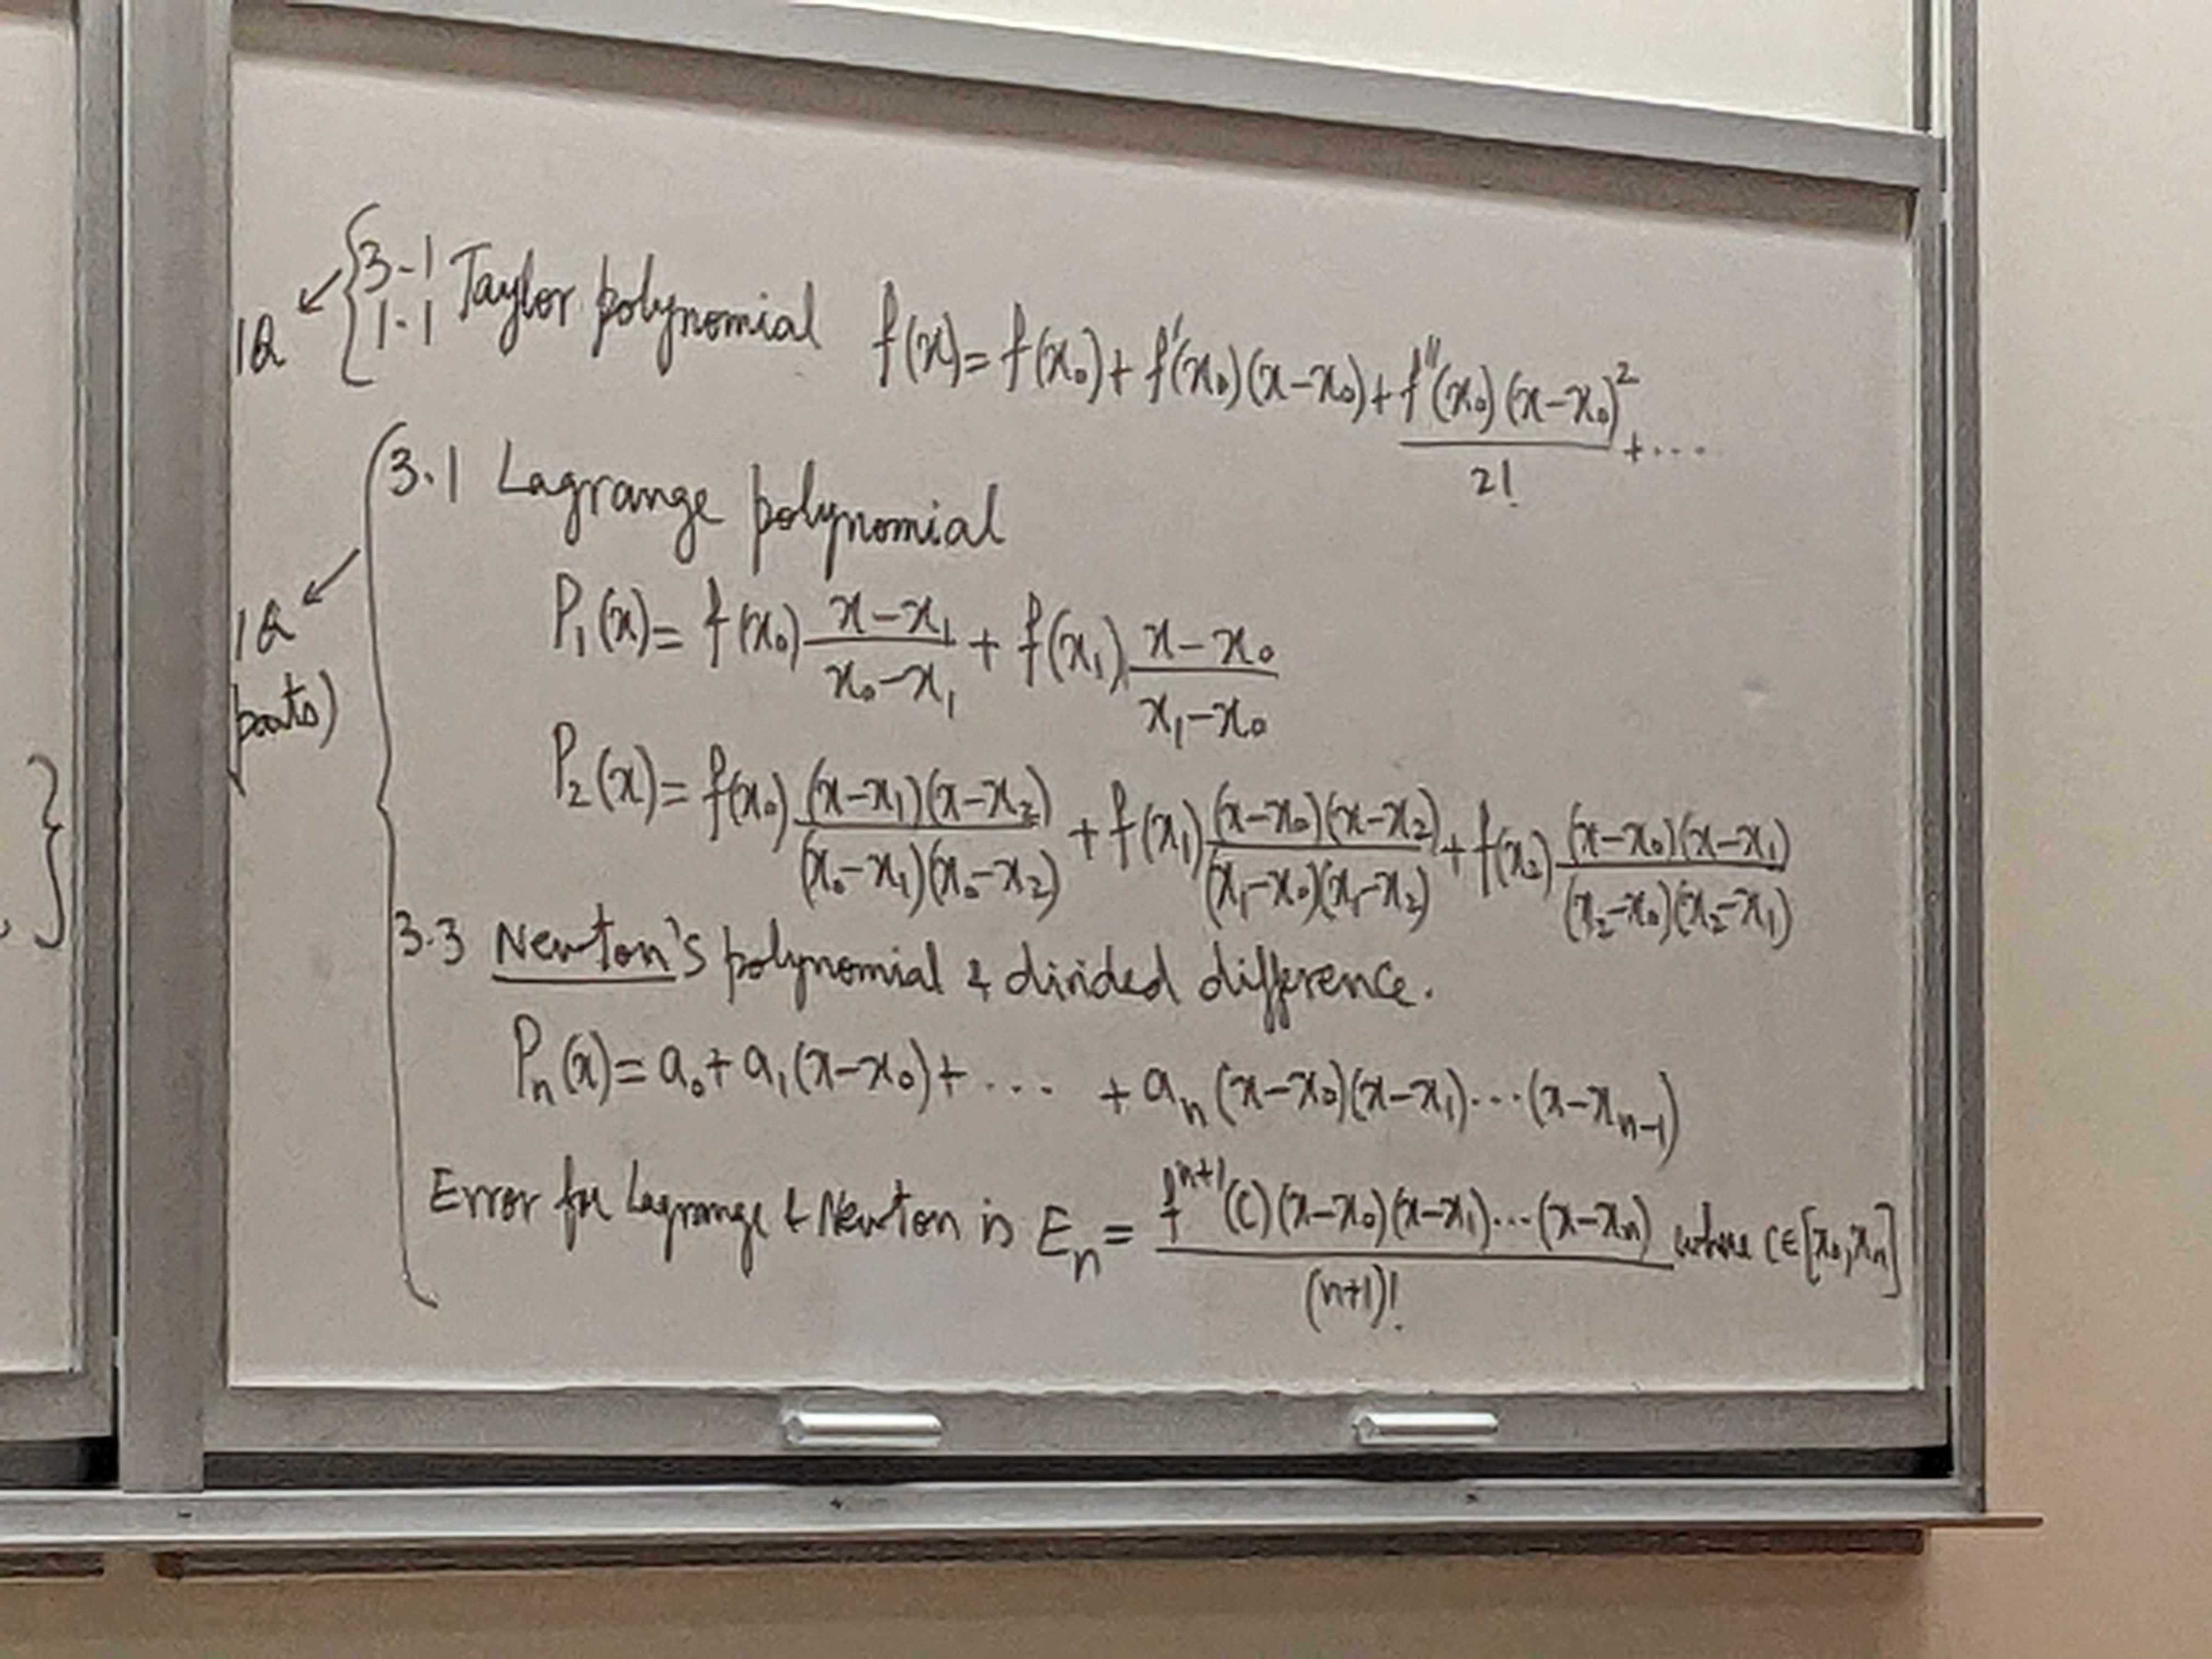 3-1
1.1 Taylor polynomial f(x) = f(x₀) + f'(x₀)(x-x₀) + f''(x₀)(x-x₀)²/2! + ....
1Q
3.1 Lagrange polynomial
P₁(x) = f(x₀) (x-x₁)/(x₀-x₁) + f(x₁) (x-x₀)/(x₁-x₀)
1Q
parts)
P₂(x) = f(x₀) (x-x₁)(x-x₂)/(x₀-x₁)(x₀-x₂) + f(x₁) (x-x₀)(x-x₂)/(x₁-x₀)(x₁-x₂) + f(x₂) (x-x₀)(x-x₁)/(x₂-x₀)(x₂-x₁)
3.3 Newton's polynomial & divided difference.
Pₙ(x) = a₀ + a₁(x-x₀) + .... + aₙ(x-x₀)(x-x₁)....(x-xₙ₋₁)
Error for Lagrange & Newton is Eₙ = fⁿ⁺¹(c)(x-x₀)(x-x₁)...(x-xₙ)/(n+1)! where c∈[x₀,xₙ]